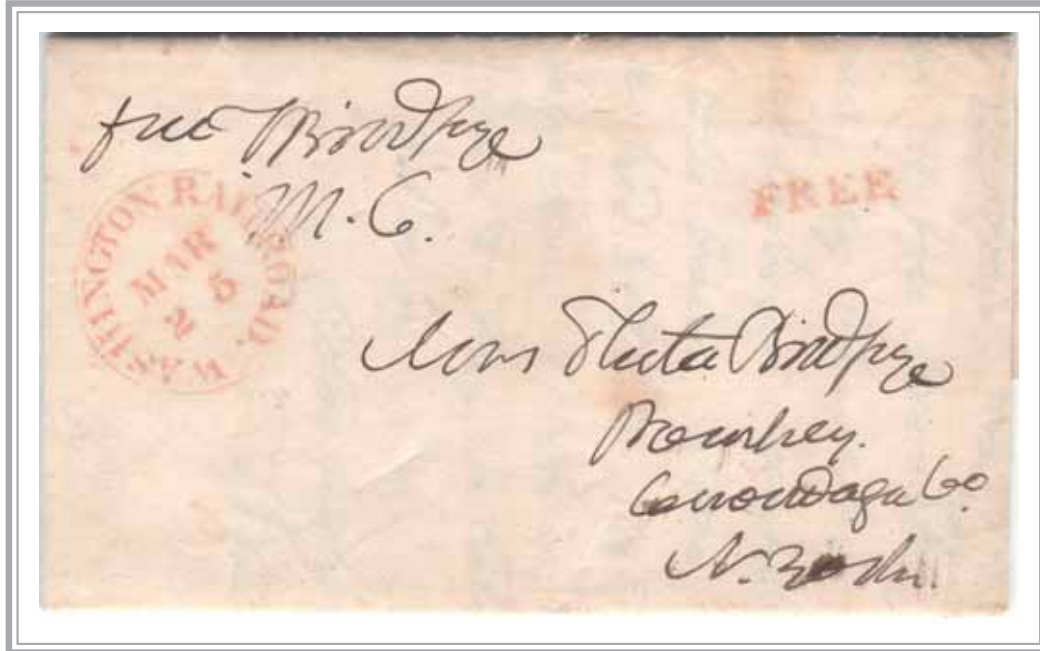 free VBirdseye
M. C.
WASHINGTON RAILROAD.
MAR
25
FREE
Mrs Electa Birdseye
Pompey.
Onondaga Co.
N. York.